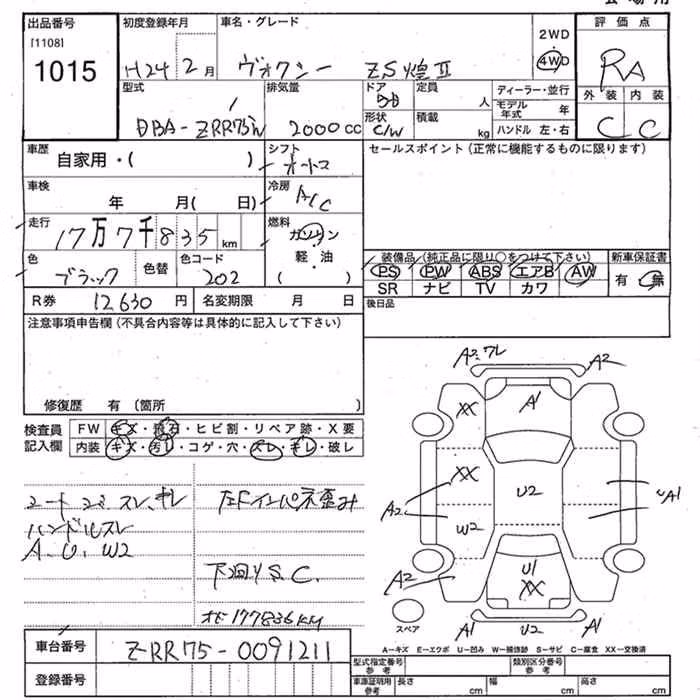 会場用
出品番号
[1108]
1015
初度登録年月
H24 2月
車名・グレード
ヴォクシー ZS煌Ⅱ
2WD
4WD
評価点
RA
外装 内装
C C
型式
DBA-ZRR75W
排気量
2000cc
ドア
5D
形状
C/W
定員
人
積載
kg
ディーラー・並行
モデル年式 年
ハンドル 左・右
車歴
自家用・( )
シフト
オートマ
セールスポイント(正常に機能するものに限ります)
車検
年 月( 日)
冷房
A/C
走行
17万7千835km
燃料
ガソリン
軽・油
( )
色
ブラック
色替
色コード
202
装備品(純正品に限り○をつけて下さい)
PS PW ABS エアB AW
SR ナビ TV カワ
新車保証書
有 無
R券 12630円
名変期限 月 日
後日品
注意事項申告欄(不具合内容等は具体的に記入して下さい)
修復歴 有(箇所 )
検査員記入欄
FW キズ・飛石・ヒビ割・リペア跡・X要
内装 キズ・汚レ・コゲ・穴・スレ・キレ・破レ
シート コゲ、スレ、キレ
ハンドルスレ
A、U、W2
左Fインパネ歪み
下回りS.C.
オモ177836KM
A2・ワレ A2
XX A1
XX
A2 U2 A1
W2
A2 U1
XX
A1 U2 A1
スペア
A-キズ E-エクボ U-凹み W-補修跡 S-サビ C-腐食 XX-交換済
車台番号 ZRR75-0091211
登録番号
型式指定番号 参考
類別区分番号 参考
車庫証明用 参考 長さ cm 幅 cm 高さ cm